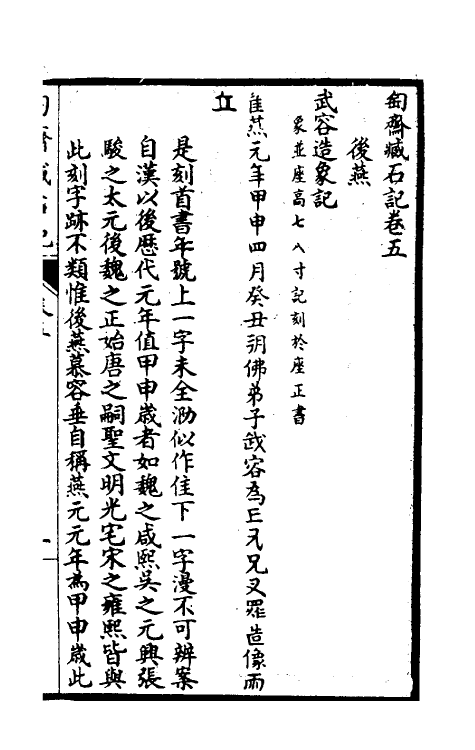 匋齋臧石記卷五
後燕
武容造象記
象並座高七八寸記刻於座正書
隹燕元年甲申四月癸丑朔佛弟子武容為亡兄又罪造像而
立
是刻首書年號上一字未全泐似作隹下一字漫不可辨案
自漢以後歷代元年值甲申歲者如魏之咸熙吳之元興張
駿之太元後魏之正始唐之嗣聖文明光宅宋之雍熙皆與
此刻字跡不類惟後燕慕容垂自稱燕元元年為甲申歲此
匋齋臧石記
卷五
一